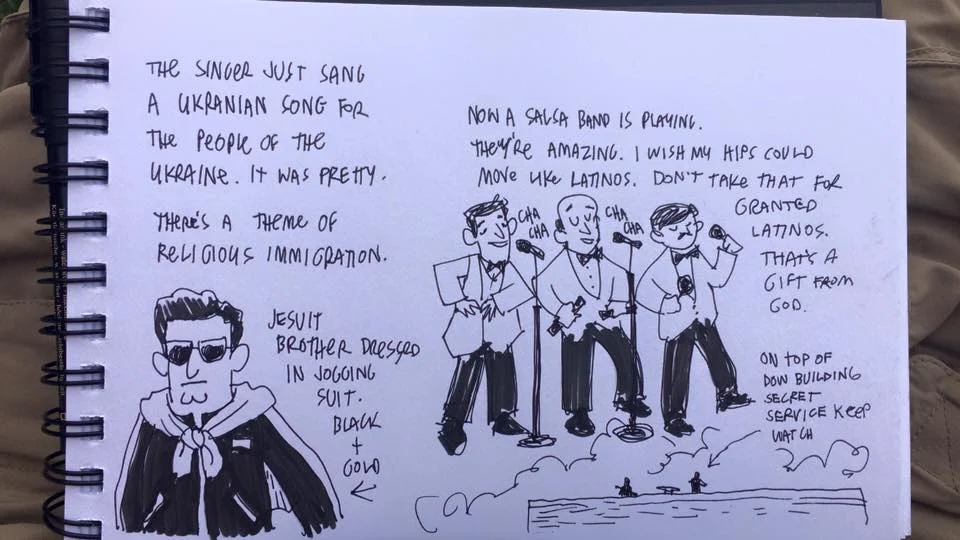 THE SINGER JUST SANG
A UKRANIAN SONG FOR
THE PEOPLE OF THE
UKRAINE. IT WAS PRETTY.
THERE'S A THEME OF
RELIGIOUS IMMIGRATION.
JESUIT
BROTHER DRESSED
IN JOGGING
SUIT.
BLACK
+
GOLD
NOW A SALSA BAND IS PLAYING.
THEY'RE AMAZING. I WISH MY HIPS COULD
MOVE LIKE LATINOS. DON'T TAKE THAT FOR
GRANTED
LATINOS.
THAT'S A
GIFT FROM
GOD.
CHA
CHA
CHA
CHA
ON TOP OF
DOW BUILDING
SECRET
SERVICE KEEP
WATCH